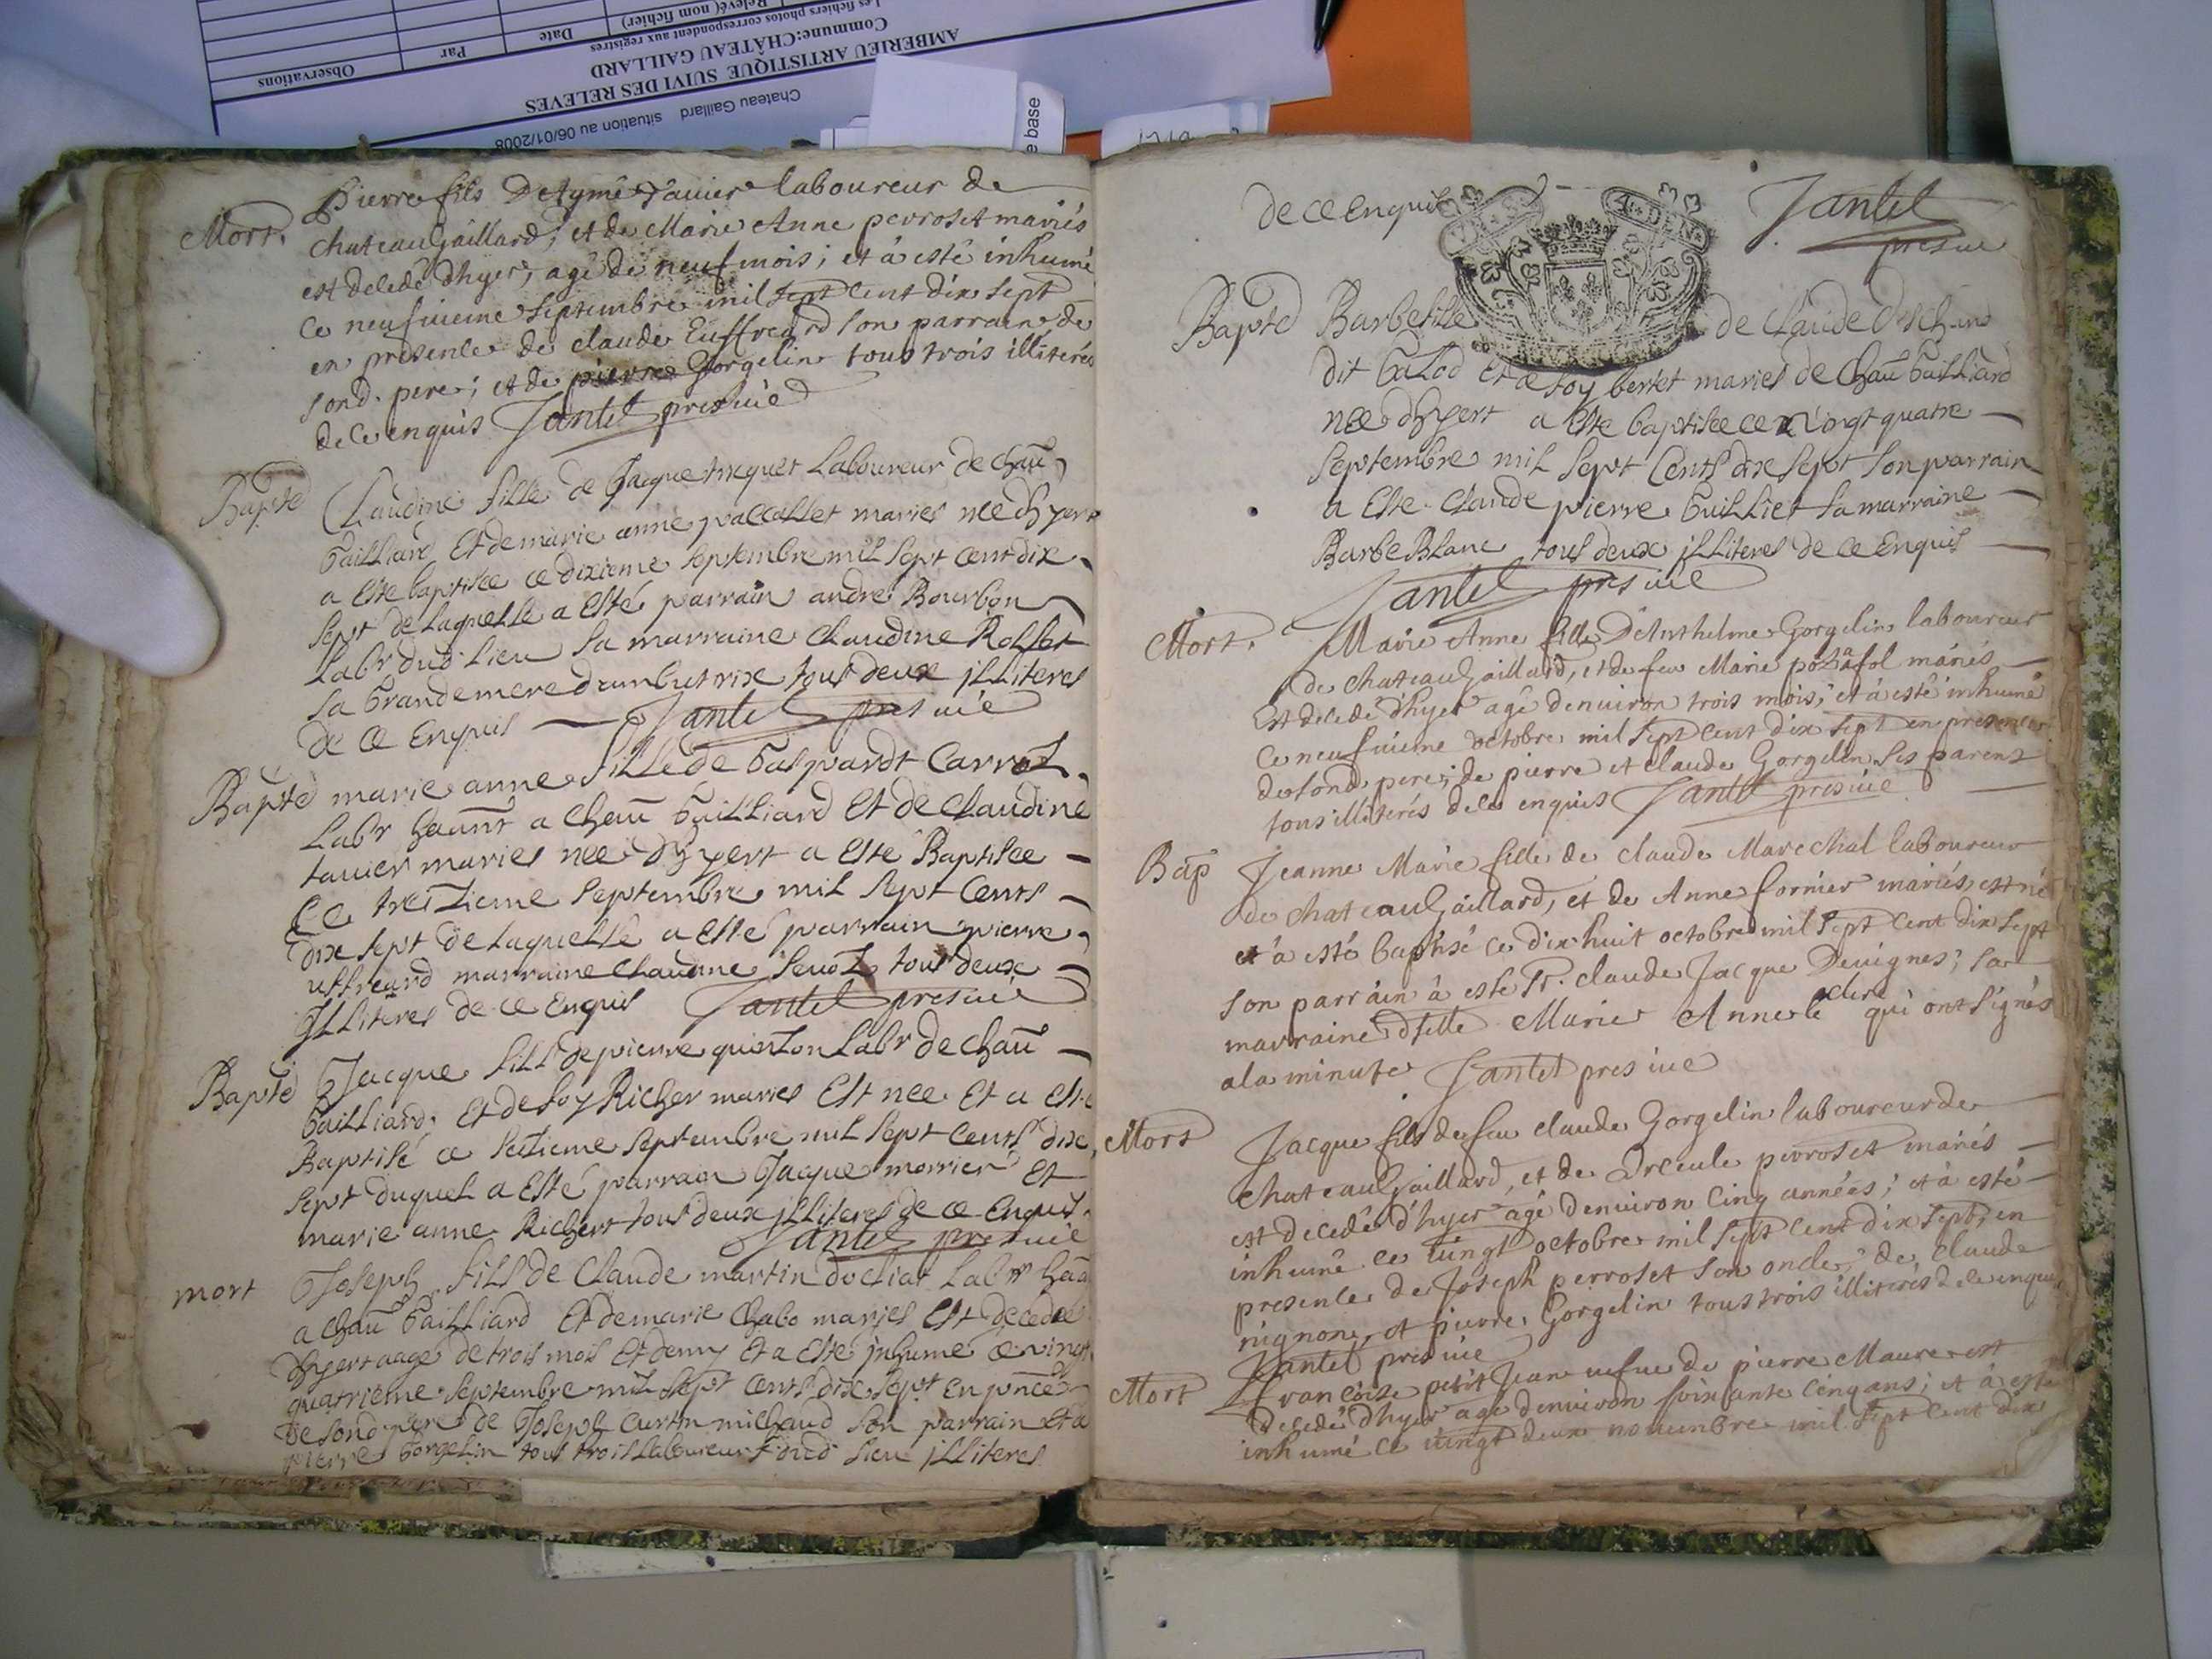 Observations
Par
Date
Relevé( nom fichier)
Les fichiers photos correspondent aux registres
Commune:CHÂTEAU GAILLARD
AMBERIEU ARTISTIQUE SUIVI DES RELEVES
Chateau Gaillard situation au 06/01/2008
e base
Mort.
Pierre fils D'Aymé Tauier laboureur de
chateau Gaillard; et de Marie Anne perroset mariés
est decedé d'hyer, agé de neuf mois; et à esté inhumé
ce neufuieme septembre mil sept cent dix sept
en presence de claude Euffreard son parrain de
sond. pere; et de pierre Gorgelin tous trois illiterés
de ce enquis Jantet presuié
Bapte
Claudine fille de Jacque Laboureur de chau
Gailliard Et de marie anne mariés née dhyert
a Esté baptisée ce dixieme septembre mil sept cent dix
sept de laquelle a Esté parrain andré Bourbon
Labr dud. Lieu sa marraine Claudine Rosset
sa Grande mere dambutrix tous deux jlliteres
de ce Enquis Jantet presuié
Bapte marie anne fille de Gaspardt Carroz
Labr hatnt a Chau Gailliard Et de Claudine
tauier mariés née dhyert a Esté Baptisée
Ce treizieme septembre mil sept Cents
dix sept de laquelle a Esté parrain pierre
uffreard marraine Claudine tous deux
Jlliteres de ce Enquis Jantet presuié
Bapte Jacque fils de pierre Labr de chau
Gailliard. Et de foy Richer mariés Est nee Et a Esté
Baptisé ce seizieme septembre mil sept Cents dix
sept duquel a Esté parrain Jacque morrier Et
marie anne Richert tous deux jlliteres de ce Enquis
Jantet presuié
mort Joseph fils de Claude martin Labr
a chau Gailliard Et de marie Chabo mariés Est decedé
dhyert aagé de trois mois Et demy Et a Esté jnhumé ce vingt
quatrieme septembre mil sept Cents dix sept en pnce
de sond pere de Joseph milhaud son parrain Et de
pierre Gorgelin tous trois Laboureurs dud Lieu jlliteres
de ce Enquis Jantet
presuié
Bapte Barbe fille de Claude
dit Galod Et de foy bertet mariés de Chau Gailliard
née dhyert a Esté baptisée ce vingt quatre
Septembre mil sept Cents dix sept son parrain
a Esté Claude pierre Guilliet sa marraine
Barbe Blanc tous deux jlliteres de ce Enquis
Jantet presuié
Mort.
Marie Anne fille D'Anthelme Gorgelin laboureur
de chateau Gaillard, et de feu Marie mariés
est decedé d'hyer agé denuiron trois mois; et à esté inhumé
ce neufuieme octobre mil sept cent dix sept en presence
de sond. pere; de pierre et claude Gorgelin ses parens
tous illiterés de ce enquis Jantet presuié
Bap Jeanne Marie fille de claude Marechal laboureur
de chateau Gaillard, et de Anne fornier mariés, est né
et à esté baptisé ce dix huit octobre mil sept cent dix sept
son parrain à esté Sr. claude Jacque Deuignes; sa
marraine dselle Marie Anne leclerc qui ont signés
a la minute Jantet presuié
Mors Jacque fils de feu claude Gorgelin laboureur de
chateau Gaillard, et de Vrceule perroset mariés
est decedé d'hyer agé denuiron cinq années; et à esté
inhumé ce uingt octobre mil sept cent dix sept, en
presence de Joseph perroset son oncle, de claude
uignon, et pierre Gorgelin tous trois illiterés de ce enquis
Jantet presuié
Mort Francoise petit Jean uefue de pierre Maure est
decedé d'hyer agé denuiron soixante cinq ans; et à esté
inhumé ce uingt deux nouembre mil sept cent dix